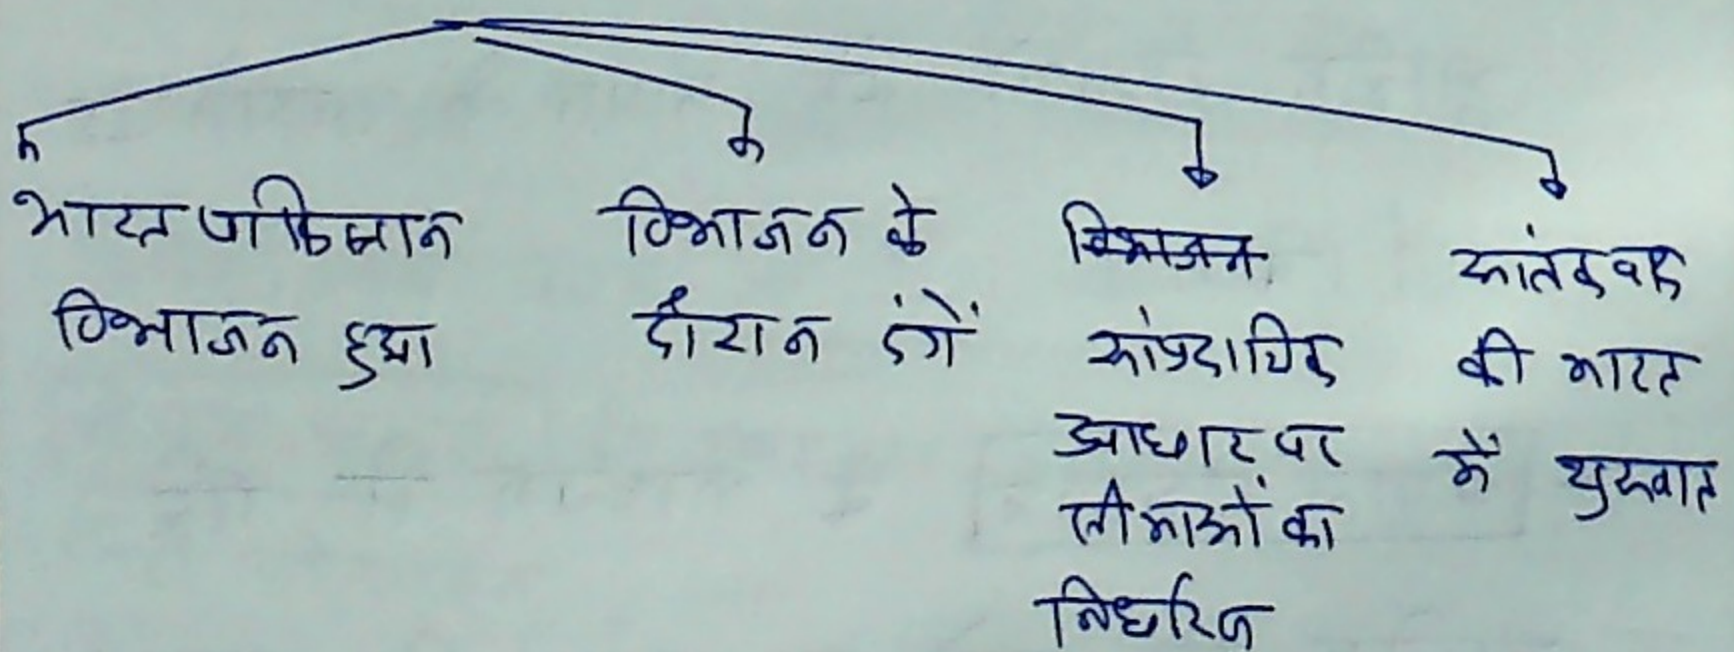 भारत पाकिस्तान
विभाजन हुआ
विभाजन के
दौरान दंगें
विभाजन
सांप्रदायिक
आधार पर
सीमाओं का
निर्धारण
आतंकवाद
की भारत
में शुरुवात